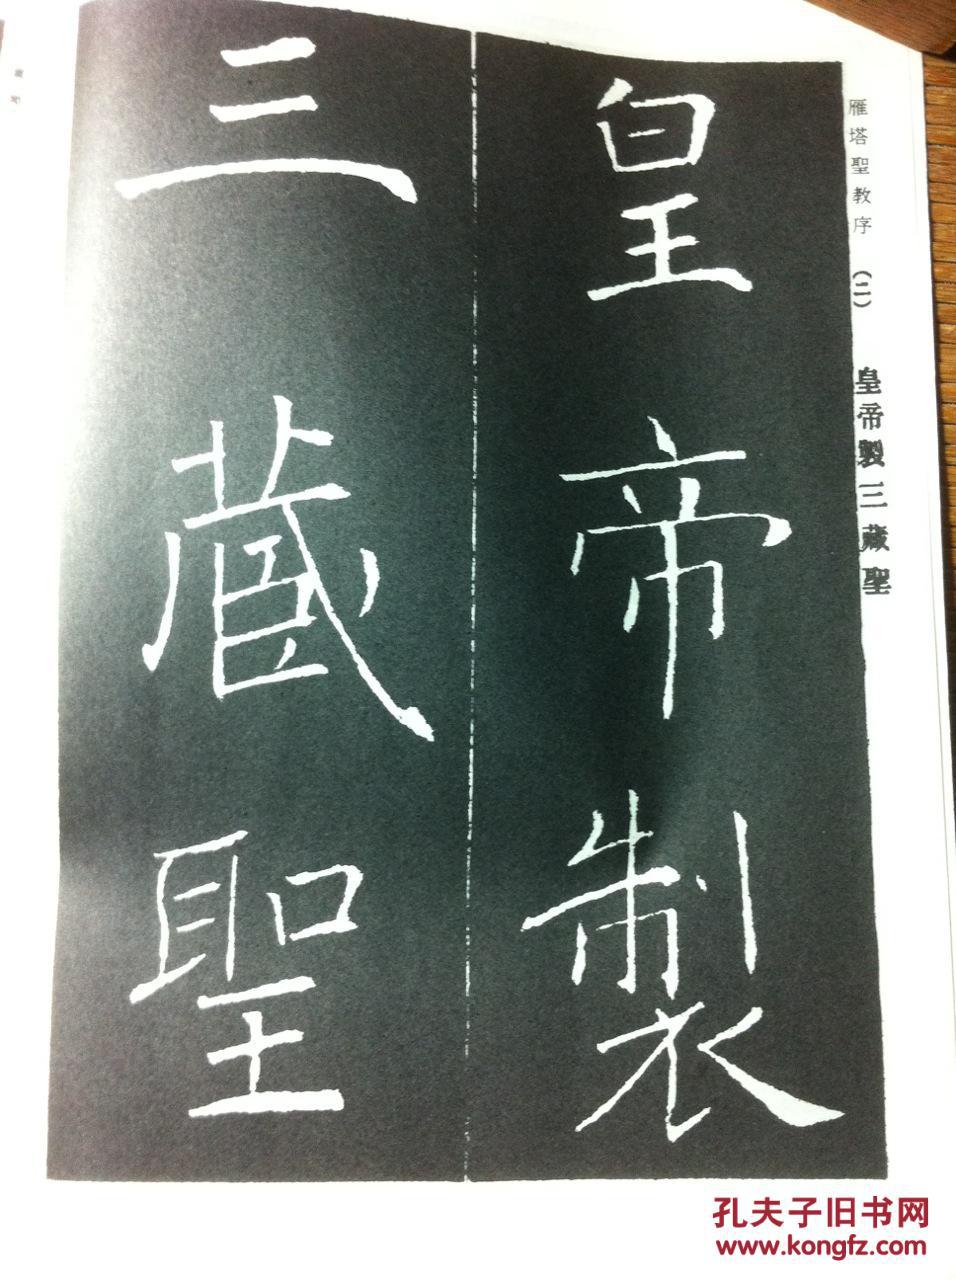 雁塔聖教序 (二) 皇帝製三藏聖
皇帝製
三藏聖
孔夫子旧书网
www.kongfz.com